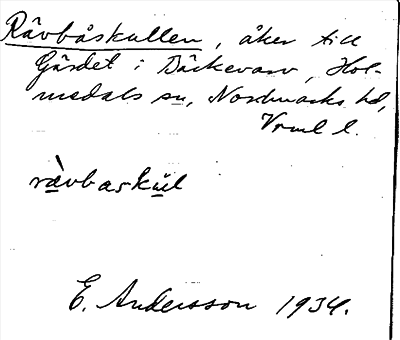 Rävbåskullen, åker till
Gärdet i Bäckevarv, Hol-
medals sn, Nordmarks hd,
Vrml l.
rävbaskul
E. Andersson 1934.